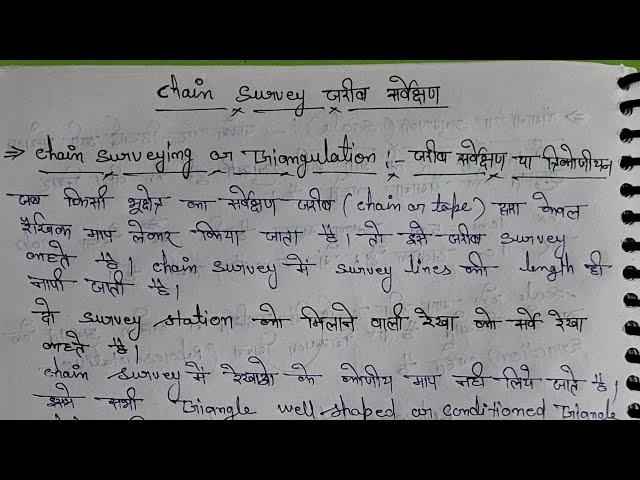 chain survey जरीब सर्वेक्षण
⇒ chain surveying or Triangulation :- जरीब सर्वेक्षण या त्रिकोणीयन
जब किसी भूक्षेत्र का सर्वेक्षण जरीब (chain or tape) द्वारा केवल
रैखिक माप लेकर किया जाता है। तो इसे जरीब survey
कहते है। chain survey में survey lines की length ही
नापी जाती है।
दो survey station को मिलाने वाली रेखा को सर्वे रेखा
कहते है।
chain survey में रेखाओ के कोणीय माप नही लिये जाते है।
इसमे सभी Triangle well-shaped or conditioned Triangle